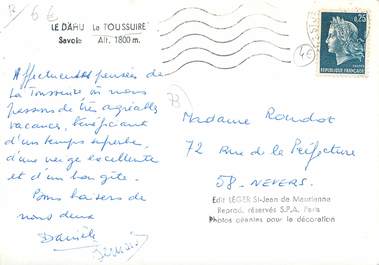 6€
LE DAHU La TOUSSUIRE
Savoie Alt. 1800 m.
0,25
REPUBLIQUE FRANÇAISE
Affectueuses pensées de
La Toussuire où nous
passons de très agréables
vacances, bénéficiant
d'un temps superbe,
d'une neige excellente
et d'un bon gîte.
Bons baisers de
nous deux
Danièle
Madame Roudot
72 Rue de la Préfecture
58 - NEVERS.
Edit LEGER St-Jean de Maurienne
Reprod. réservés S.P.A. Paris
Photos géantes pour la décoration